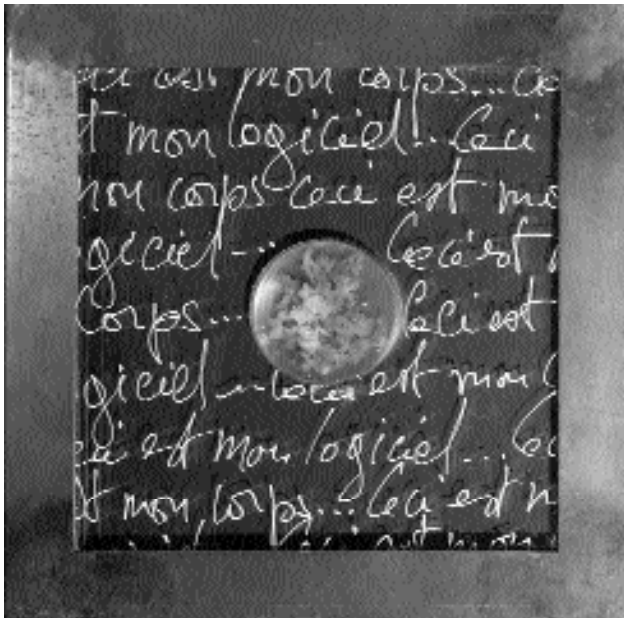 est mon corps... Ce
mon logiciel... Ceci
mon corps Ceci est mo
giciel... Ceci est
Corps... Ceci est
giciel... Ceci est mon
est mon logiciel... Ce
mon corps... Ceci est